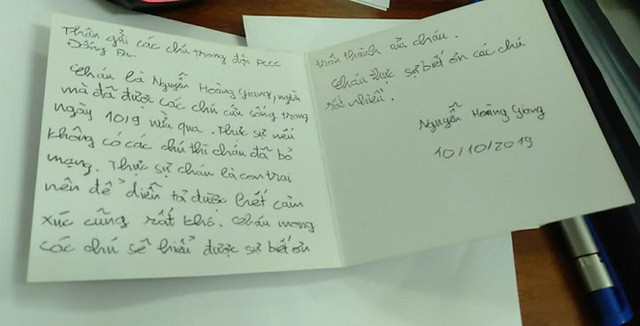 Thân gửi các chú trong đội PCCC
Đống Đa.
Cháu là Nguyễn Hoàng Giang, người
mà đã được các chú cứu sống trong
ngày 10/9 vừa qua. Thực sự nếu
không có các chú thì cháu đã bỏ
mạng. Thực sự cháu là con trai
nên để diễn tả được hết cảm
xúc cũng rất khó. Cháu mong
các chú sẽ hiểu được sự biết ơn
chân thành của cháu.
Cháu thực sự biết ơn các chú
rất nhiều.
Nguyễn Hoàng Giang
10/10/2019